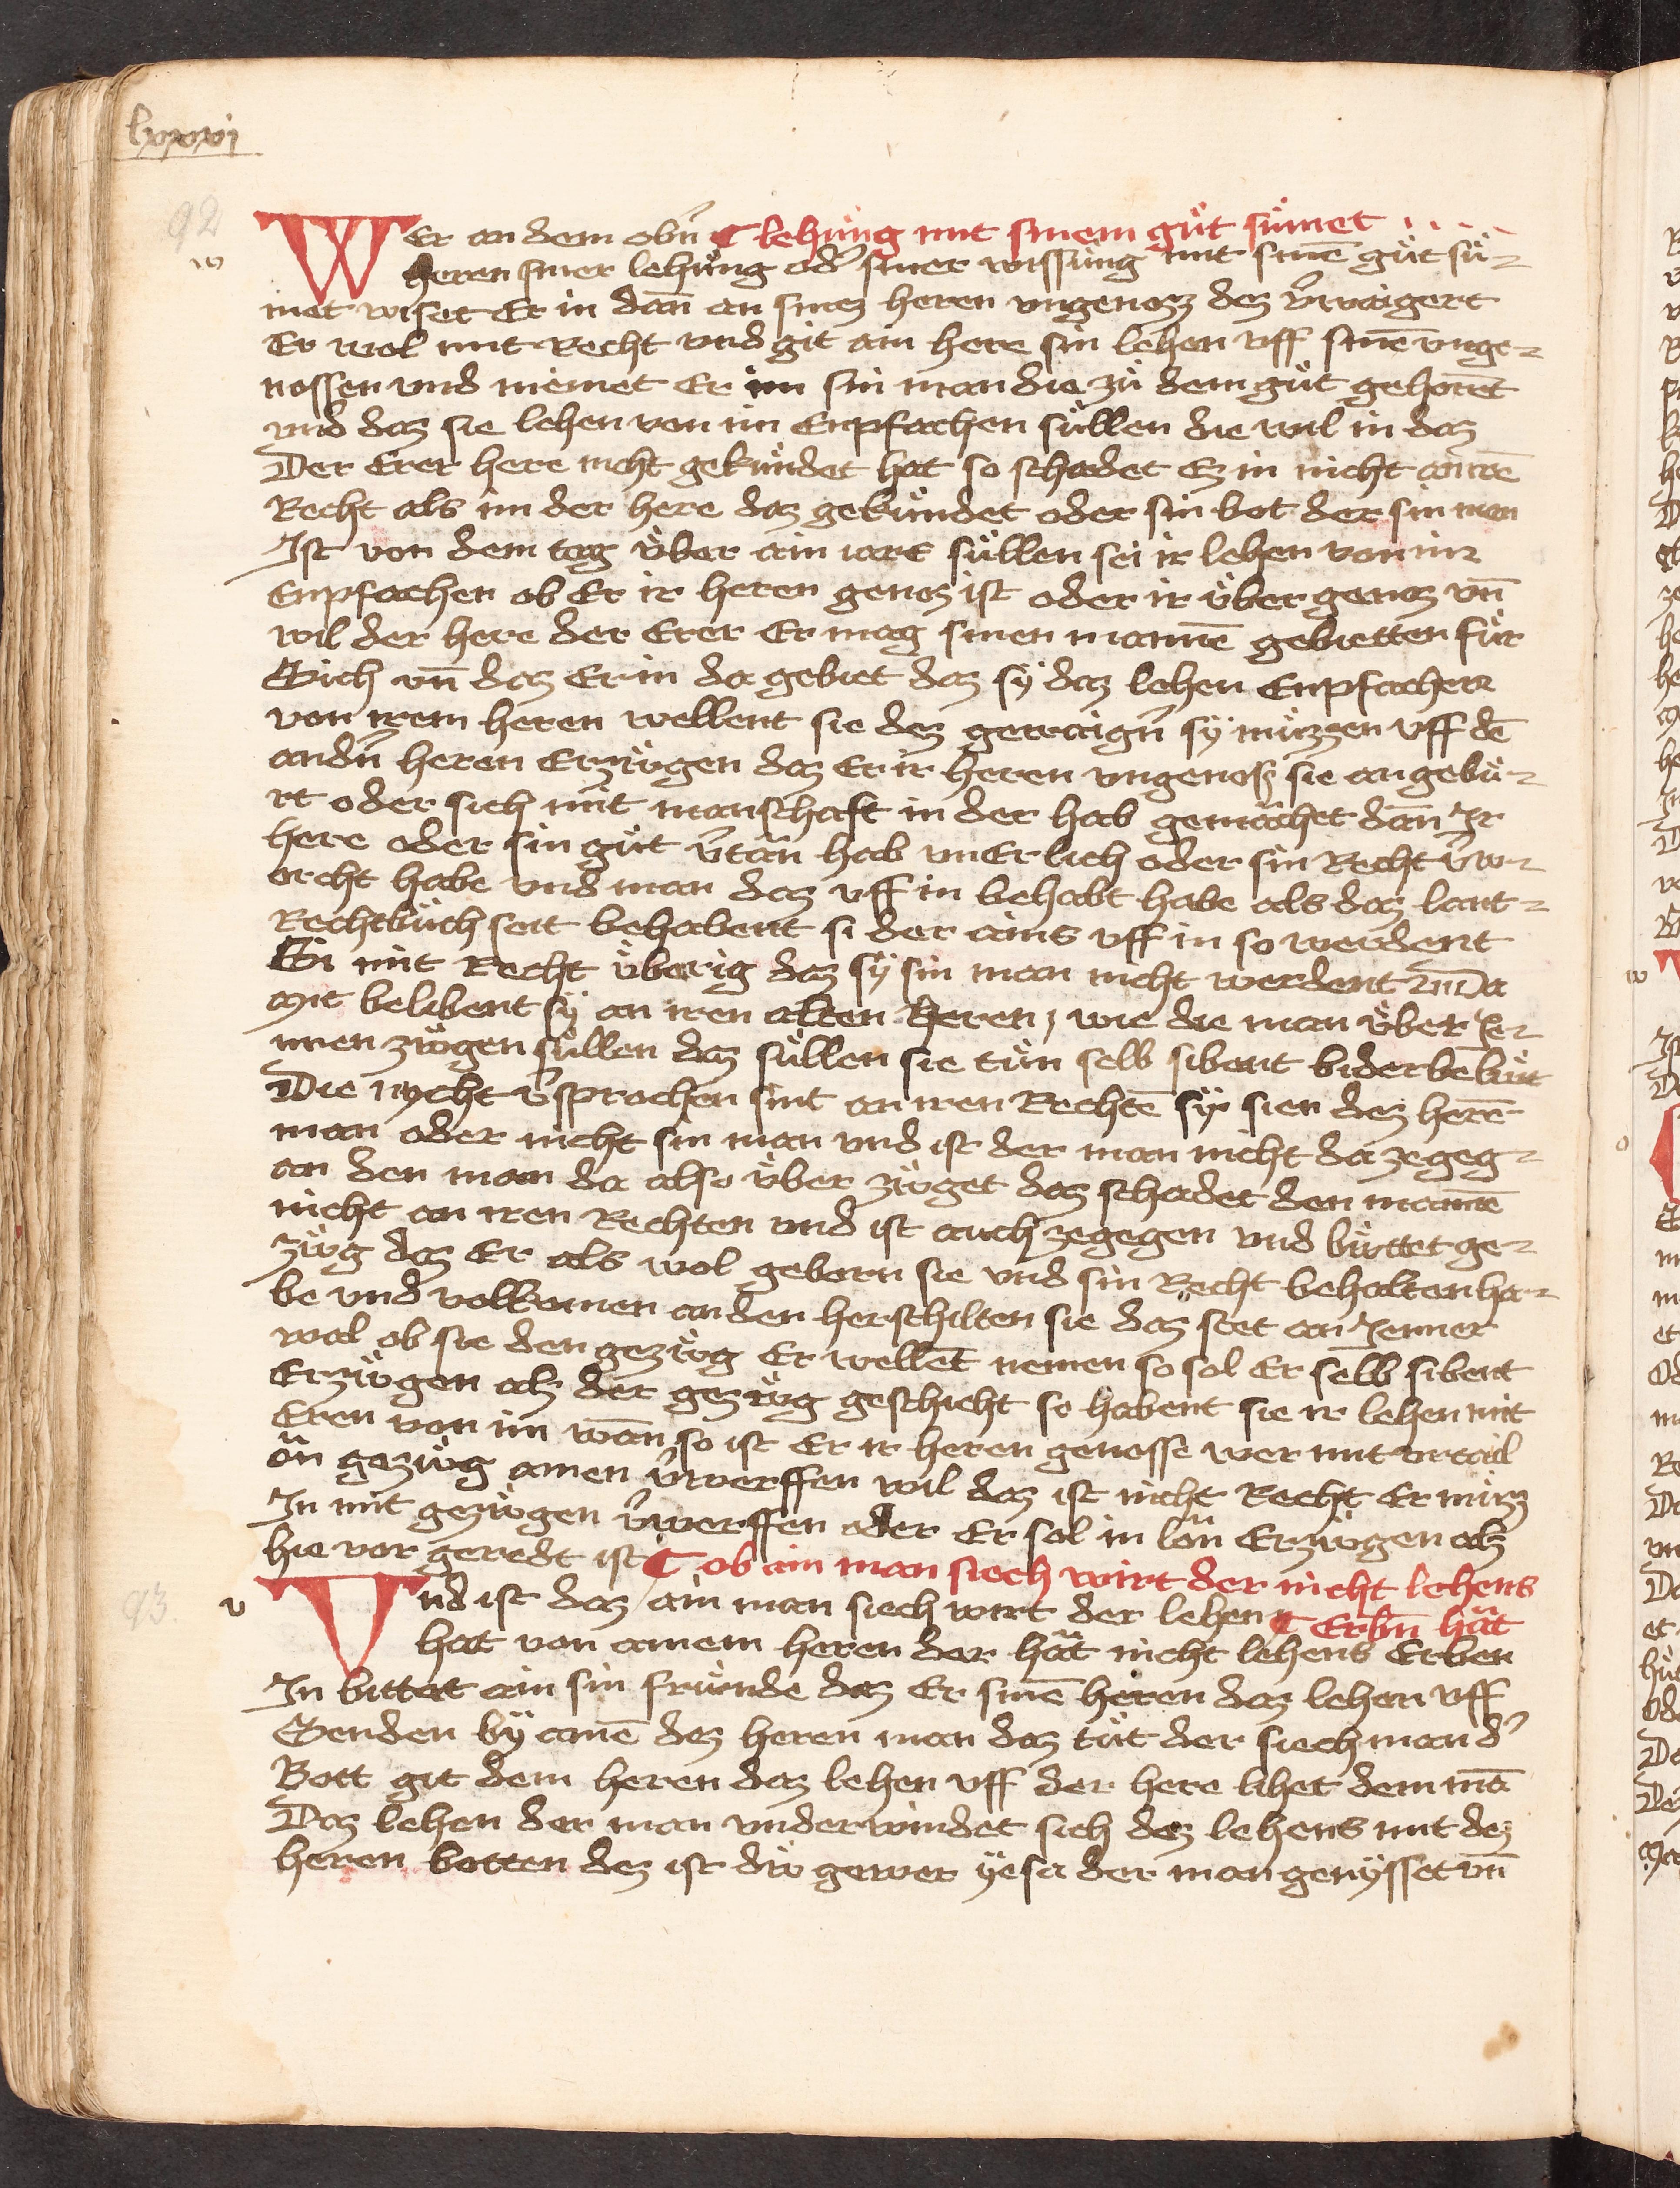 lxxxvi
92
WEr an dem obn̄ ¶ lehung mit sinem gůt sumet . . . .
w
heren siner lehung od' siner wissung mit sinē gůt sů-
met wiset Er in dan̄ an sinez heren ungenozz dez v'waigert
Er wol mit Recht vnd git ain here sin lehen vff sinē vnge-
nossen vnd niemet Er im sin man die zů dem gůt gehorēt
vnd daz sie lehen von im Enpfachen süllen die wil in daz
Der Erer here nicht gekündet hat so schadet Ez in nicht an irē
Recht als im der here daz gekündet oder sin bot der sin man
Ist von dem tag über ain iare süllen sei ir lehen von im
Enpfachen ob Er ir heren genoz ist oder ir über genoz vn̄
wil der here der Erer Er mag sinen mannē gebietten für
Sich vn̄ daz Er in da gebiet daz sÿ daz lehen Enpfachen
von irem heren wellent sie dez gewaign' sÿ müzzen vff dē
andn' heren Erzügen daz Er ir heren vngenoß sie an gebů-
rt oder sich mit manschaft in der hab gemachet dan̄ Ir
here oder sin gůt v'tan hab vnErlich oder sin Recht v'w-
orcht habe vnd man daz vff in behabt habe als daz lant-
Rechtbuch seit behabent si der ains vff in so werdent
Si mit Recht überig daz sÿ sin man nicht werdent Vn̄ da
mit belibent sÿ an iren alten Heren, wie die man über Ie-
men zügen süllen daz süllen sie tůn selb sibent biderbe lüt
Die nycht v'sprochen sint an iren Rechtē sÿ sien dez herē
man oder nicht sin man vnd ist der man nicht da zegeg-
an den man da also über züget daz schadet den mannē
nicht an iren Rechten vnd ist auch zegegen vnd büttet ge-
züg daz Er als wol geborn sie vnd sin Recht behalten ha-
be vnd volkomen an den herschilten sie daz stet an Ienner
wal ob sie den gezüg Er wellēt nemen so sol Er selb sibent
Erzügen alz der gezüg geschicht so habent sie ir lehen mit
Eren von im wan̄ so ist Er ir heren genosse wer mit vrtail
ân gezüg ainen v'werffen wil daz ist nicht Recht Er müz
In mit gezügen v'werffen oder Er sol in lôn Erzügen alz
hie vor geredt ist ¶ ob ain man siech wirt der nicht lehens
93.
v
Vnd ist daz ain man siech wirt der lehen ¶ Erbn̄ hât
hat von ainem heren der hât nicht lehens Erben
In bittet ain sin fründe daz Er sinē heren daz lehen vff
Senden bÿ ainē dez heren man daz tůt der siech man d'
Bott git dem heren daz lehen vff der here lihet dem mā
Daz lehen der man underwindet sich dez lehens mit dez
heren botten dez ist dü gewer ÿesa der man genÿsset vn̄